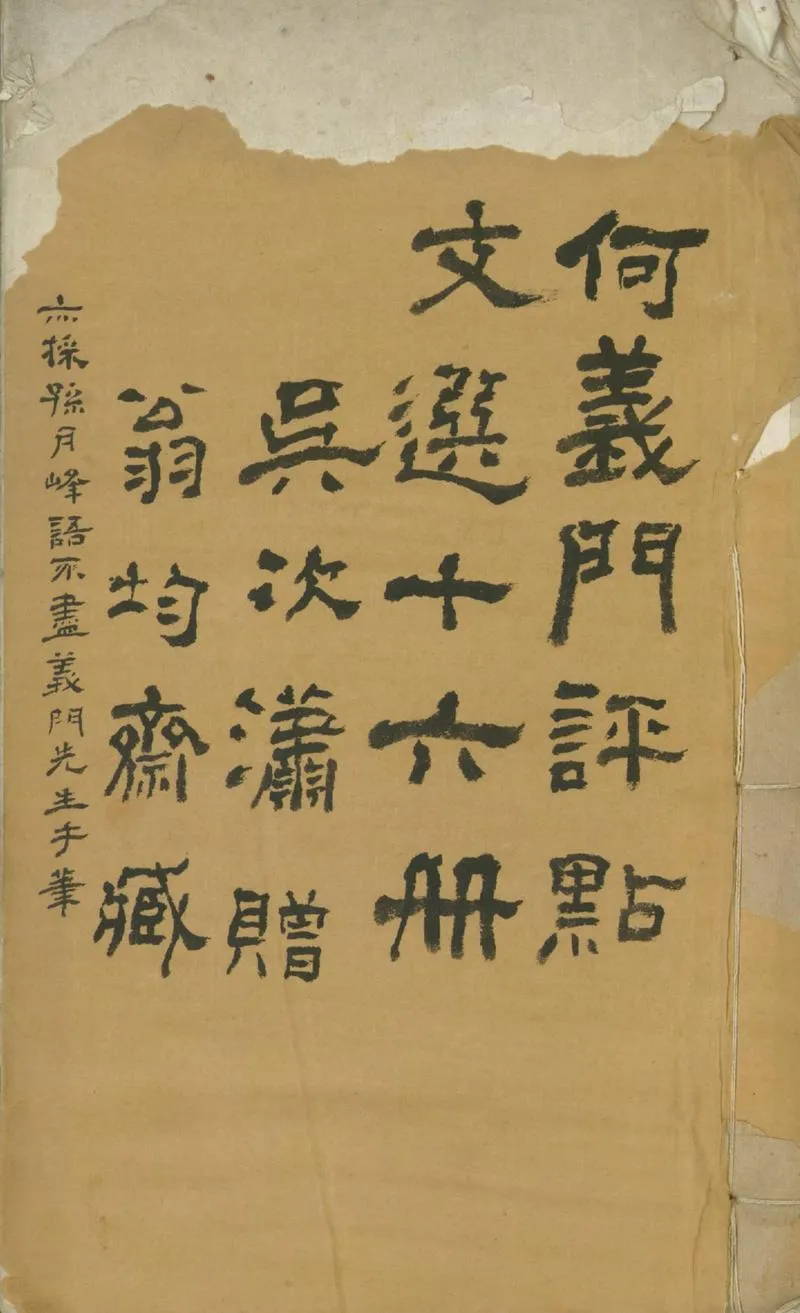 何義門評點
文選十六册
吳次瀟贈
翁均齋藏
亦採孫月峰語不盡義門先生手筆